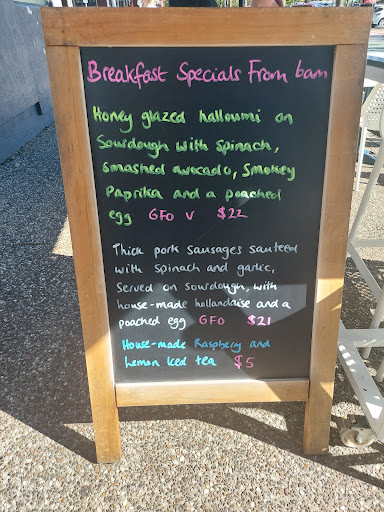 Breakfast Specials From 6am
Honey glazed halloumi on
Sourdough with Spinach,
Smashed avocado, Smokey
Paprika and a poached
egg GFO V $22
Thick pork sausages sauteed
with spinach and garlic,
Served on sourdough, with
house-made hollandaise and a
poached egg GFO $21
House-made Raspberry and
Lemon Iced tea $5